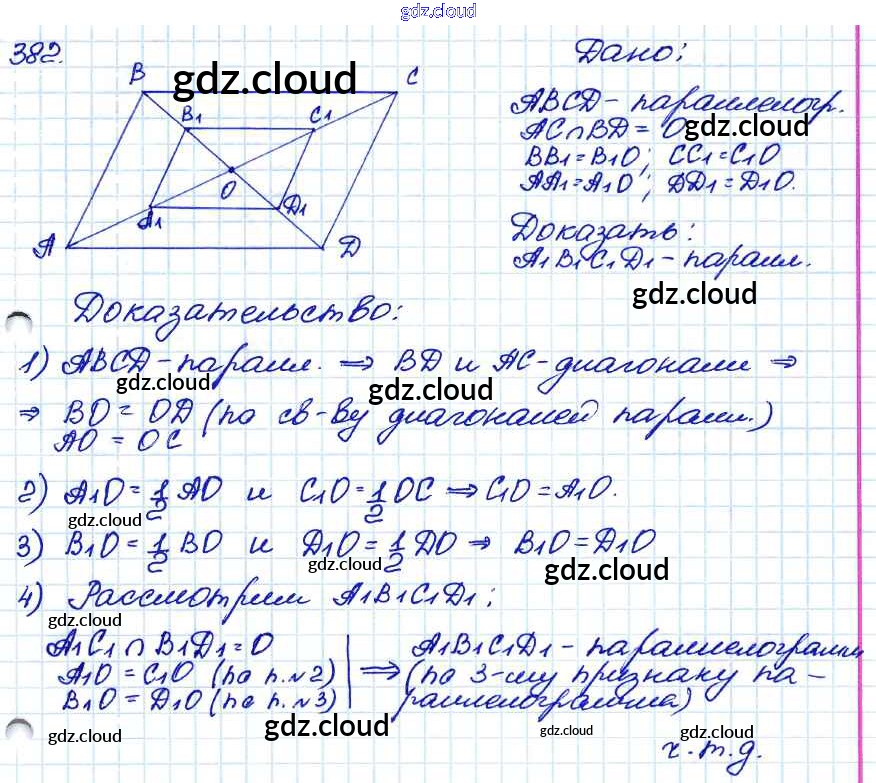 gdz.cloud
382.
Дано:
B
gdz.cloud
C
ABCD - параллелогр.
B1
C1
AC∩BD = O
gdz.cloud
BB1 = B1O; CC1 = C1O
AA1 = A1O; DD1 = D1O.
O
A1
D1
A
D
Доказать:
A1B1C1D1 - паралл.
gdz.cloud
Доказательство:
1) ABCD - паралл. ⇒ BD и AC - диагонали ⇒
gdz.cloud
gdz.cloud
⇒ BO = OD (по св-ву диагоналей паралл.)
AO = OC
2) A1O = 1/2 AO и C1O = 1/2 OC ⇒ C1O = A1O.
gdz.cloud
3) B1O = 1/2 BO и D1O = 1/2 DO ⇒ B1O = D1O
gdz.cloud
gdz.cloud
4) Рассмотрим A1B1C1D1:
gdz.cloud
A1C1 ∩ B1D1 = O
A1O = C1O (по п.№2)
B1O = D1O (по п.№3)
⇒ A1B1C1D1 - параллелограмм
(по 3-му признаку па-
раллелограмма)
gdz.cloud
gdz.cloud
gdz.cloud
gdz.cloud
ч.т.д.